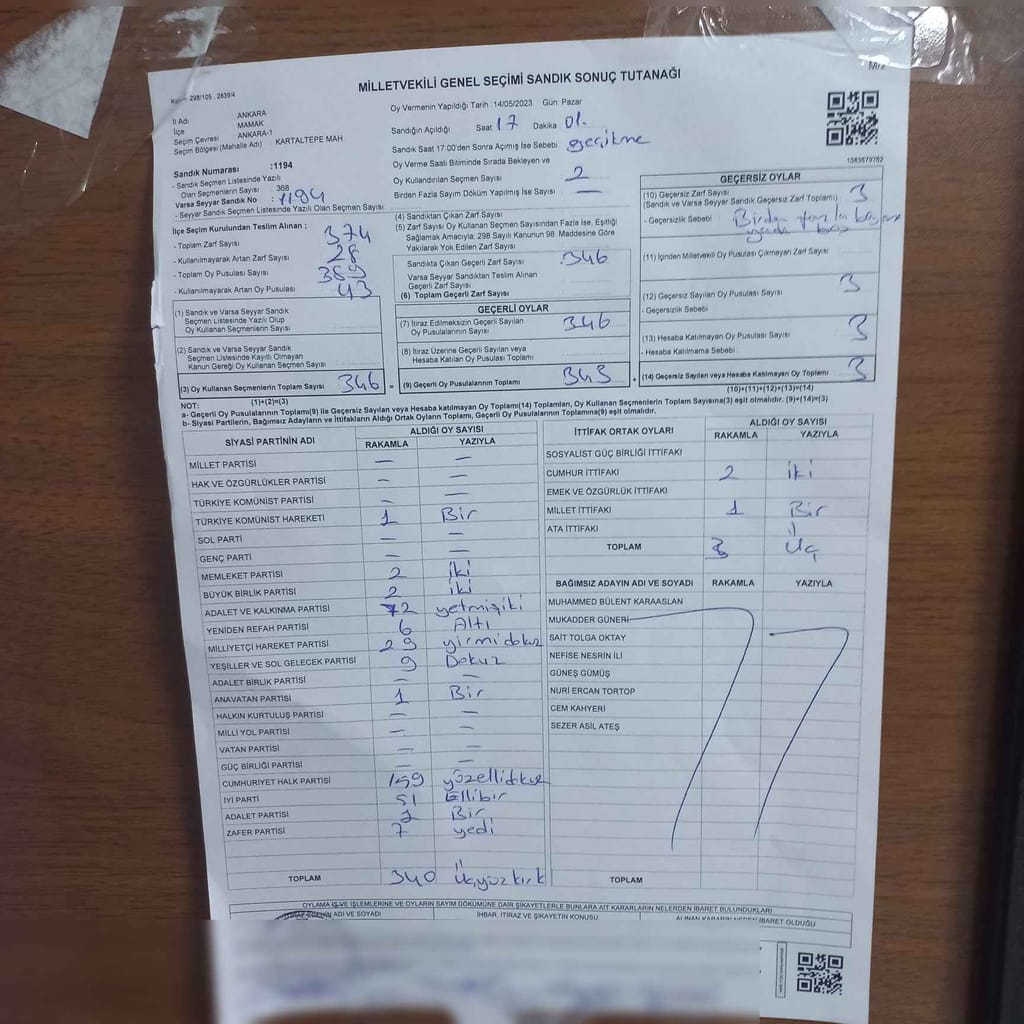 MİLLETVEKİLİ GENEL SEÇİMİ SANDIK SONUÇ TUTANAĞI
298/105 - 2839/4
İl Adı ANKARA
İlçe MAMAK
Seçim Çevresi ANKARA-1
Seçim Bölgesi (Mahalle Adı) KARTALTEPE MAH
Oy Vermenin Yapıldığı Tarih 14/05/2023 Gün: Pazar
Sandığın Açıldığı Saat 17 Dakika 01.
Sandık Saat 17.00'den Sonra Açımış İse Sebebi gecikme
Oy Verme Saati Bitiminde Sırada Bekleyen ve
Oy Kullandırılan Seçmen Sayısı 2
Birden Fazla Sayım Döküm Yapılmış İse Sayısı —
1083679762
Sandık Numarası :1194
- Sandık Seçmen Listesinde Yazılı
Olan Seçmenlerin Sayısı : 368
Varsa Seyyar Sandık No : 1194
- Seyyar Sandık Seçmen Listesinde Yazılı Olan Seçmen Sayısı
İlçe Seçim Kurulundan Teslim Alınan ;
- Toplam Zarf Sayısı 374
- Kullanılmayarak Artan Zarf Sayısı 28
- Toplam Oy Pusulası Sayısı 389
- Kullanılmayarak Artan Oy Pusulası 43
(1) Sandık ve Varsa Seyyar Sandık
Seçmen Listesinde Yazılı Olup
Oy Kullanan Seçmenlerin Sayısı
(2) Sandık ve Varsa Seyyar Sandık
Seçmen Listesinde Kayıtlı Olmayan
Kanun Gereği Oy Kullanan Seçmen Sayısı
(3) Oy Kullanan Seçmenlerin Toplam Sayısı 346 =
(1)+(2)=(3)
(4) Sandıktan Çıkan Zarf Sayısı
(5) Zarf Sayısı Oy Kullanan Seçmen Sayısından Fazla İse, Eşitliği
Sağlamak Amacıyla, 298 Sayılı Kanunun 98. Maddesine Göre
Yakılarak Yok Edilen Zarf Sayısı
Sandıkta Çıkan Geçerli Zarf Sayısı 346
Varsa Seyyar Sandıktan Teslim Alınan
Geçerli Zarf Sayısı
(6) Toplam Geçerli Zarf Sayısı
GEÇERLİ OYLAR
(7) İtiraz Edilmeksizin Geçerli Sayılan
Oy Pusulalarının Sayısı 346
(8) İtiraz Üzerine Geçerli Sayılan veya
Hesaba Katılan Oy Pusulası Toplamı
(9) Geçerli Oy Pusulalarının Toplamı 343 +
GEÇERSİZ OYLAR
(10) Geçersiz Zarf Sayısı
(Sandık ve Varsa Seyyar Sandık Geçersiz Zarf Toplamı) 3
- Geçersizlik Sebebi Birden fazla
(11) İçinden Milletvekili Oy Pusulası Çıkmayan Zarf Sayısı
(12) Geçersiz Sayılan Oy Pusulası Sayısı 3
- Geçersizlik Sebebi
(13) Hesaba Katılmayan Oy Pusulası Sayısı 3
- Hesaba Katılmama Sebebi
(14) Geçersiz Sayılan veya Hesaba Katılmayan Oy Toplamı 3
(10)+(11)+(12)+(13)=(14)
NOT:
a- Geçerli Oy Pusulalarının Toplamı(9) ile Geçersiz Sayılan veya Hesaba katılmayan Oy Toplamı(14) Toplamları, Oy Kullanan Seçmenlerin Toplam Sayısına(3) eşit olmalıdır. (9)+(14)=(3)
b- Siyasi Partilerin, Bağımsız Adayların ve İttifakların Aldığı Ortak Oyların Toplamı, Geçerli Oy Pusulalarının Toplamına(9) eşit olmalıdır.
SİYASİ PARTİNİN ADI ALDIĞI OY SAYISI
RAKAMLA YAZIYLA
MİLLET PARTİSİ — —
HAK VE ÖZGÜRLÜKLER PARTİSİ — —
TÜRKİYE KOMÜNİST PARTİSİ — —
TÜRKİYE KOMÜNİST HAREKETİ 1 Bir
SOL PARTİ — —
GENÇ PARTİ — —
MEMLEKET PARTİSİ 2 iki
BÜYÜK BİRLİK PARTİSİ 2 iki
ADALET VE KALKINMA PARTİSİ 72 yetmişiki
YENİDEN REFAH PARTİSİ 6 Altı
MİLLİYETÇİ HAREKET PARTİSİ 29 yirmidokuz
YEŞİLLER VE SOL GELECEK PARTİSİ 9 Dokuz
ADALET BİRLİK PARTİSİ — —
ANAVATAN PARTİSİ 1 Bir
HALKIN KURTULUŞ PARTİSİ — —
MİLLİ YOL PARTİSİ — —
VATAN PARTİSİ — —
GÜÇ BİRLİĞİ PARTİSİ — —
CUMHURİYET HALK PARTİSİ 159 yüzellidokuz
İYİ PARTİ 51 Ellibir
ADALET PARTİSİ 1 Bir
ZAFER PARTİSİ 7 yedi
TOPLAM 340 Üçyüzkırk
İTTİFAK ORTAK OYLARI ALDIĞI OY SAYISI
RAKAMLA YAZIYLA
SOSYALİST GÜÇ BİRLİĞİ İTTİFAKI
CUMHUR İTTİFAKI 2 iki
EMEK VE ÖZGÜRLÜK İTTİFAKI
MİLLET İTTİFAKI 1 Bir
ATA İTTİFAKI
TOPLAM 3 Üç
BAĞIMSIZ ADAYIN ADI VE SOYADI RAKAMLA YAZIYLA
MUHAMMED BÜLENT KARAASLAN
MUKADDER GÜNERİ
SAİT TOLGA OKTAY
NEFİSE NESRİN İLİ
GÜNEŞ GÜMÜŞ
NURİ ERCAN TORTOP
CEM KAHYERİ
SEZER ASİL ATEŞ
TOPLAM
OYLAMA İŞ VE İŞLEMLERİNE VE OYLARIN SAYIM DÖKÜMÜNE DAİR ŞİKAYETLERLE BUNLARA AİT KARARLARIN NELERDEN İBARET BULUNDUKLARI
İTİRAZ EDENİN ADI VE SOYADI İHBAR, İTİRAZ VE ŞİKAYETİN KONUSU ALINAN KARARIN NEDEN İBARET OLDUĞU